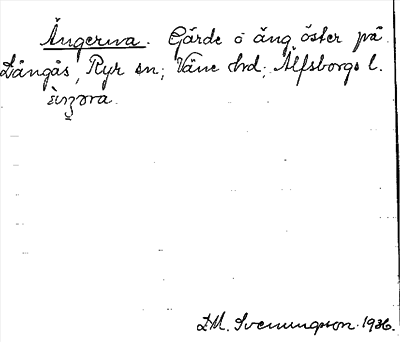 Ängerna. Gärde o äng öster på
Långås, Ryr sn; Väne hd; Älfsborgs l.
D.M. Svenungsson. 1936.